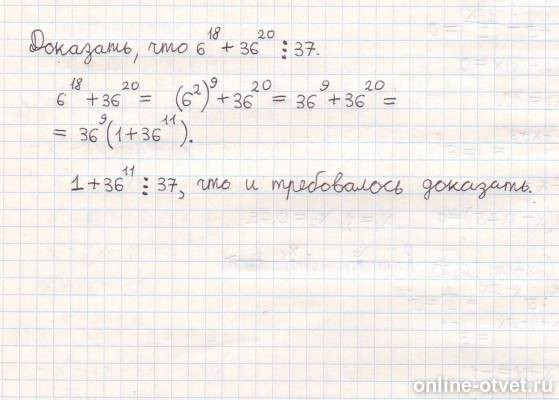 Доказать, что 6¹⁸ + 36²⁰ ⋮ 37.
6¹⁸ + 36²⁰ = (6²)⁹ + 36²⁰ = 36⁹ + 36²⁰ =
= 36⁹(1 + 36¹¹).
1 + 36¹¹ ⋮ 37, что и требовалось доказать.
online-otvet.ru